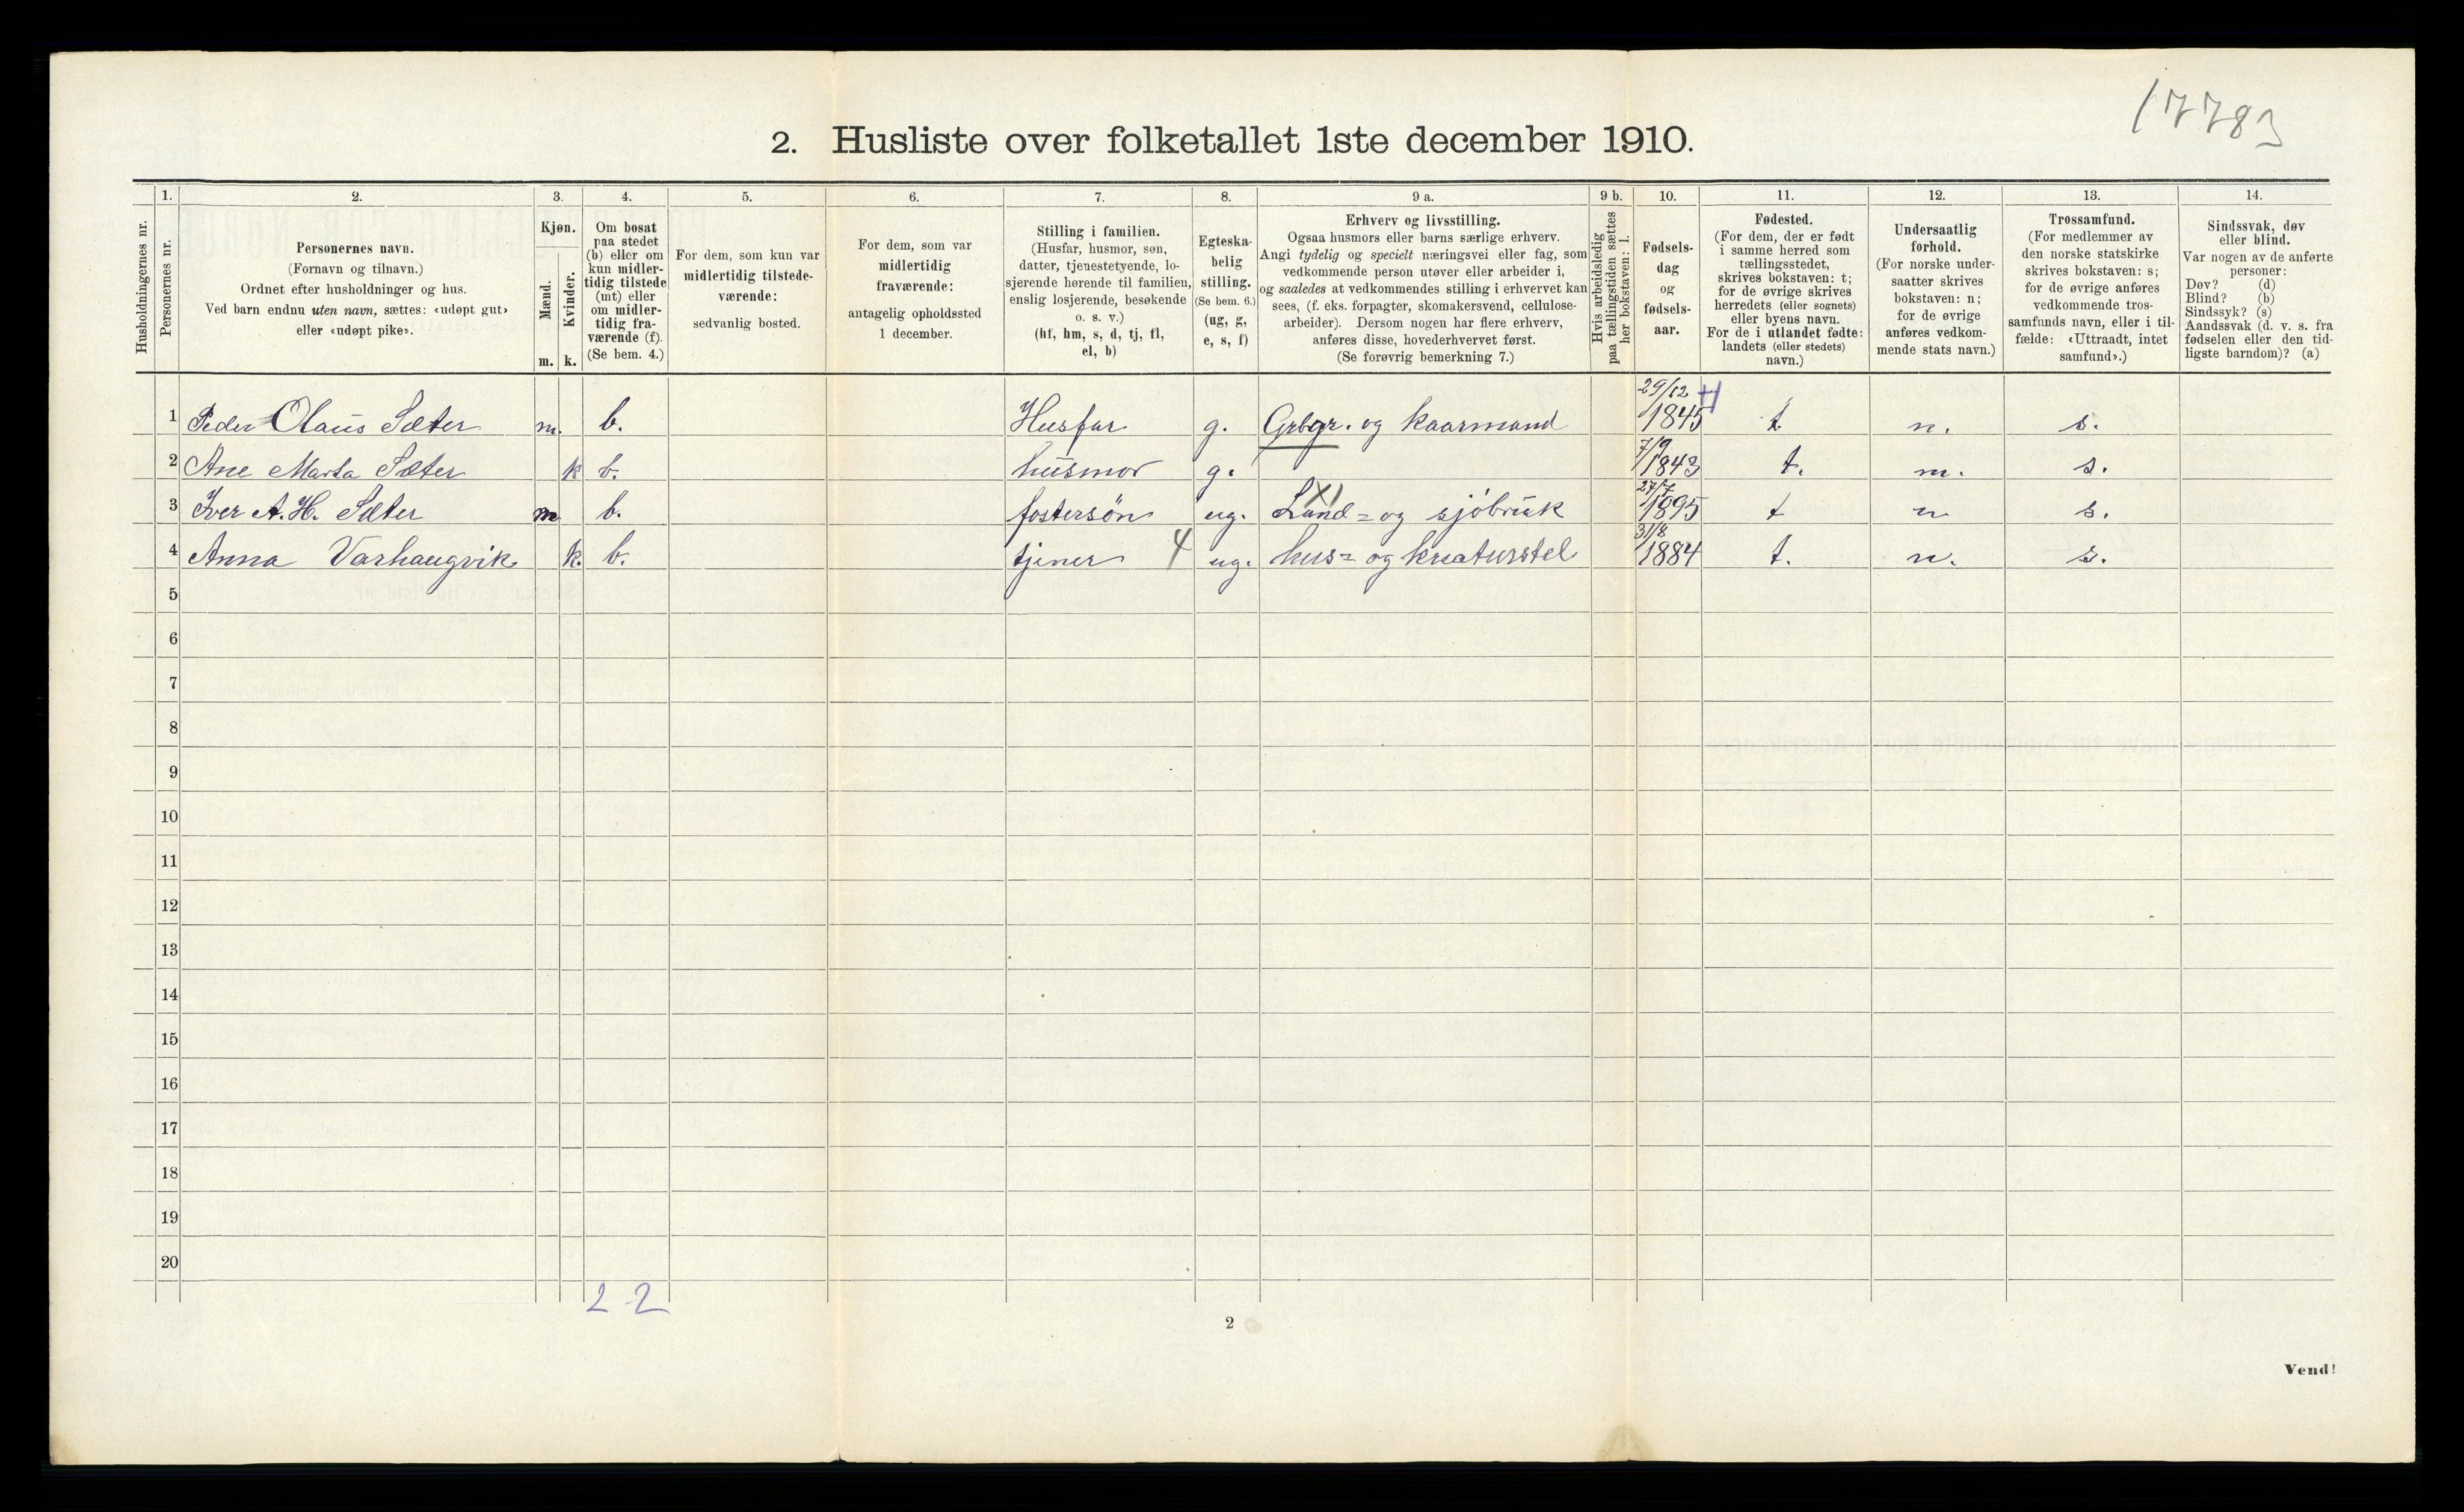 17783
2. Husliste over folketallet 1ste december 1910.
Husholdningernes nr.
1.
Personernes nr.
2.
Personernes navn.
(Fornavn og tilnavn.)
Ordnet efter husholdninger og hus.
Ved barn endnu uten navn, sættes: «udøpt gut»
eller «udøpt pike».
3.
Kjøn.
Mænd.
Kvinder.
m. k.
4.
Om bosat
paa stedet
(b) eller om
kun midler-
tidig tilstede
(mt) eller
om midler-
tidig fra-
værende (f).
(Se bem. 4.)
5.
For dem, som kun var
midlertidig tilstede-
værende:
sedvanlig bosted.
6.
For dem, som var
midlertidig
fraværende:
antagelig opholdssted
1 december.
7.
Stilling i familien.
(Husfar, husmor, søn,
datter, tjenestetyende, lo-
sjerende hørende til familien,
enslig losjerende, besøkende
o. s. v.)
(hf, hm, s, d, tj, fl,
el, b)
8.
Egteska-
belig
stilling.
(Se bem. 6.)
(ug, g,
e, s, f)
9 a.
Erhverv og livsstilling.
Ogsaa husmors eller barns særlige erhverv.
Angi tydelig og specielt næringsvei eller fag, som
vedkommende person utøver eller arbeider i,
og saaledes at vedkommendes stilling i erhvervet kan
sees, (f. eks. forpagter, skomakersvend, cellulose-
arbeider). Dersom nogen har flere erhverv,
anføres disse, hovederhvervet først.
(Se forøvrig bemerkning 7.)
9 b.
Hvis arbeidsledig
paa tællingstiden sættes
her bokstaven: l.
10.
Fødsels-
dag
og
fødsels-
aar.
11.
Fødested.
(For dem, der er født
i samme herred som
tællingsstedet,
skrives bokstaven: t;
for de øvrige skrives
herredets (eller sognets)
eller byens navn.
For de i utlandet fødte:
landets (eller stedets)
navn.)
12.
Undersaatlig
forhold.
(For norske under-
saatter skrives
bokstaven: n;
for de øvrige
anføres vedkom-
mende stats navn.)
13.
Trossamfund.
(For medlemmer av
den norske statskirke
skrives bokstaven: s;
for de øvrige anføres
vedkommende tros-
samfunds navn, eller i til-
fælde: «Uttraadt, intet
samfund».)
14.
Sindssvak, døv
eller blind.
Var nogen av de anførte
personer:
Døv? (d)
Blind? (b)
Sindssyk? (s)
Aandssvak (d. v. s. fra
fødselen eller den tid-
ligste barndom)? (a)
1 Peder Olaus Sæter m. b. Husfar g. Grbgr. og kaarmand 29/12 1845 t n. s.
2 Ane Marta Sæter k b. husmor g. 7/9 1843 t. n. s.
3 Iver A. H. Sæter m b. fostersön ug. Land= og sjöbruk 27/7 1895 t n s.
4 Anna Varhaugvik k. b. tjener 4 ug. hus= og kreaturstel 31/8 1884 t. n. s.
5
6
7
8
9
10
11
12
13
14
15
16
17
18
19
20
2 2
2
Vend!